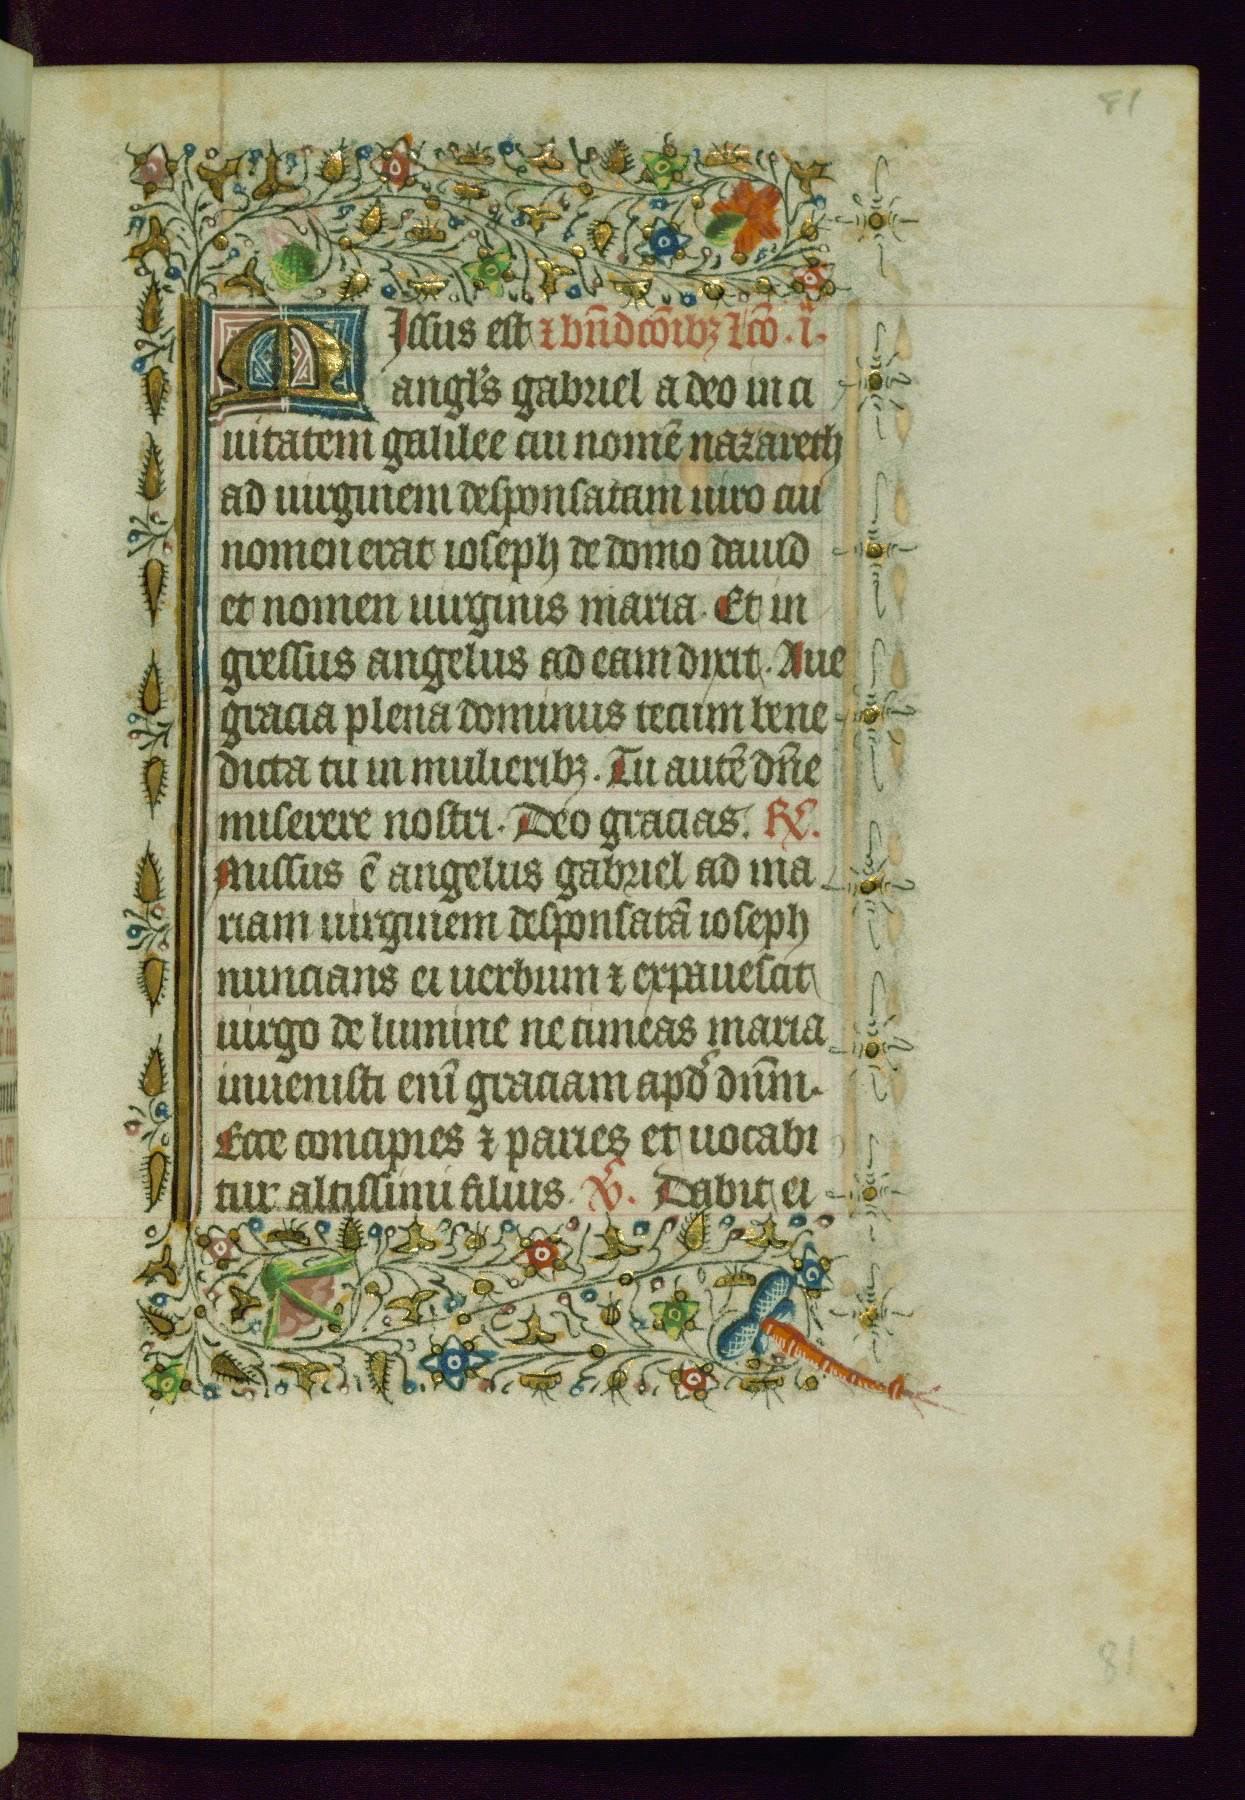 81
Missus est ⁊ bn̄dcōibꝫ lcō. i.
angl's gabriel a deo in ci
uitatem galilee cui nomē nazareth
ad uirginem desponsatam uiro cui
nomen erat ioseph de domo dauid
et nomen uirginis maria. Et in
gressus angelus ad eam dixit. Aue
gracia plena dominus tecum bene
dicta tu in mulieribꝫ. Tu autē dn̄e
miserere nostri. Deo gracias. R̸.
Missus ē angelus gabriel ad ma
riam uirginem desponsatā ioseph
nuncians ei uerbum ⁊ expauescit
uirgo de lumine ne timeas maria
inuenisti enī graciam apd̕ dn̄m.
Ecce concipies ⁊ paries et uocabi
tur altissimi filius. V̸. Dabit ei
81